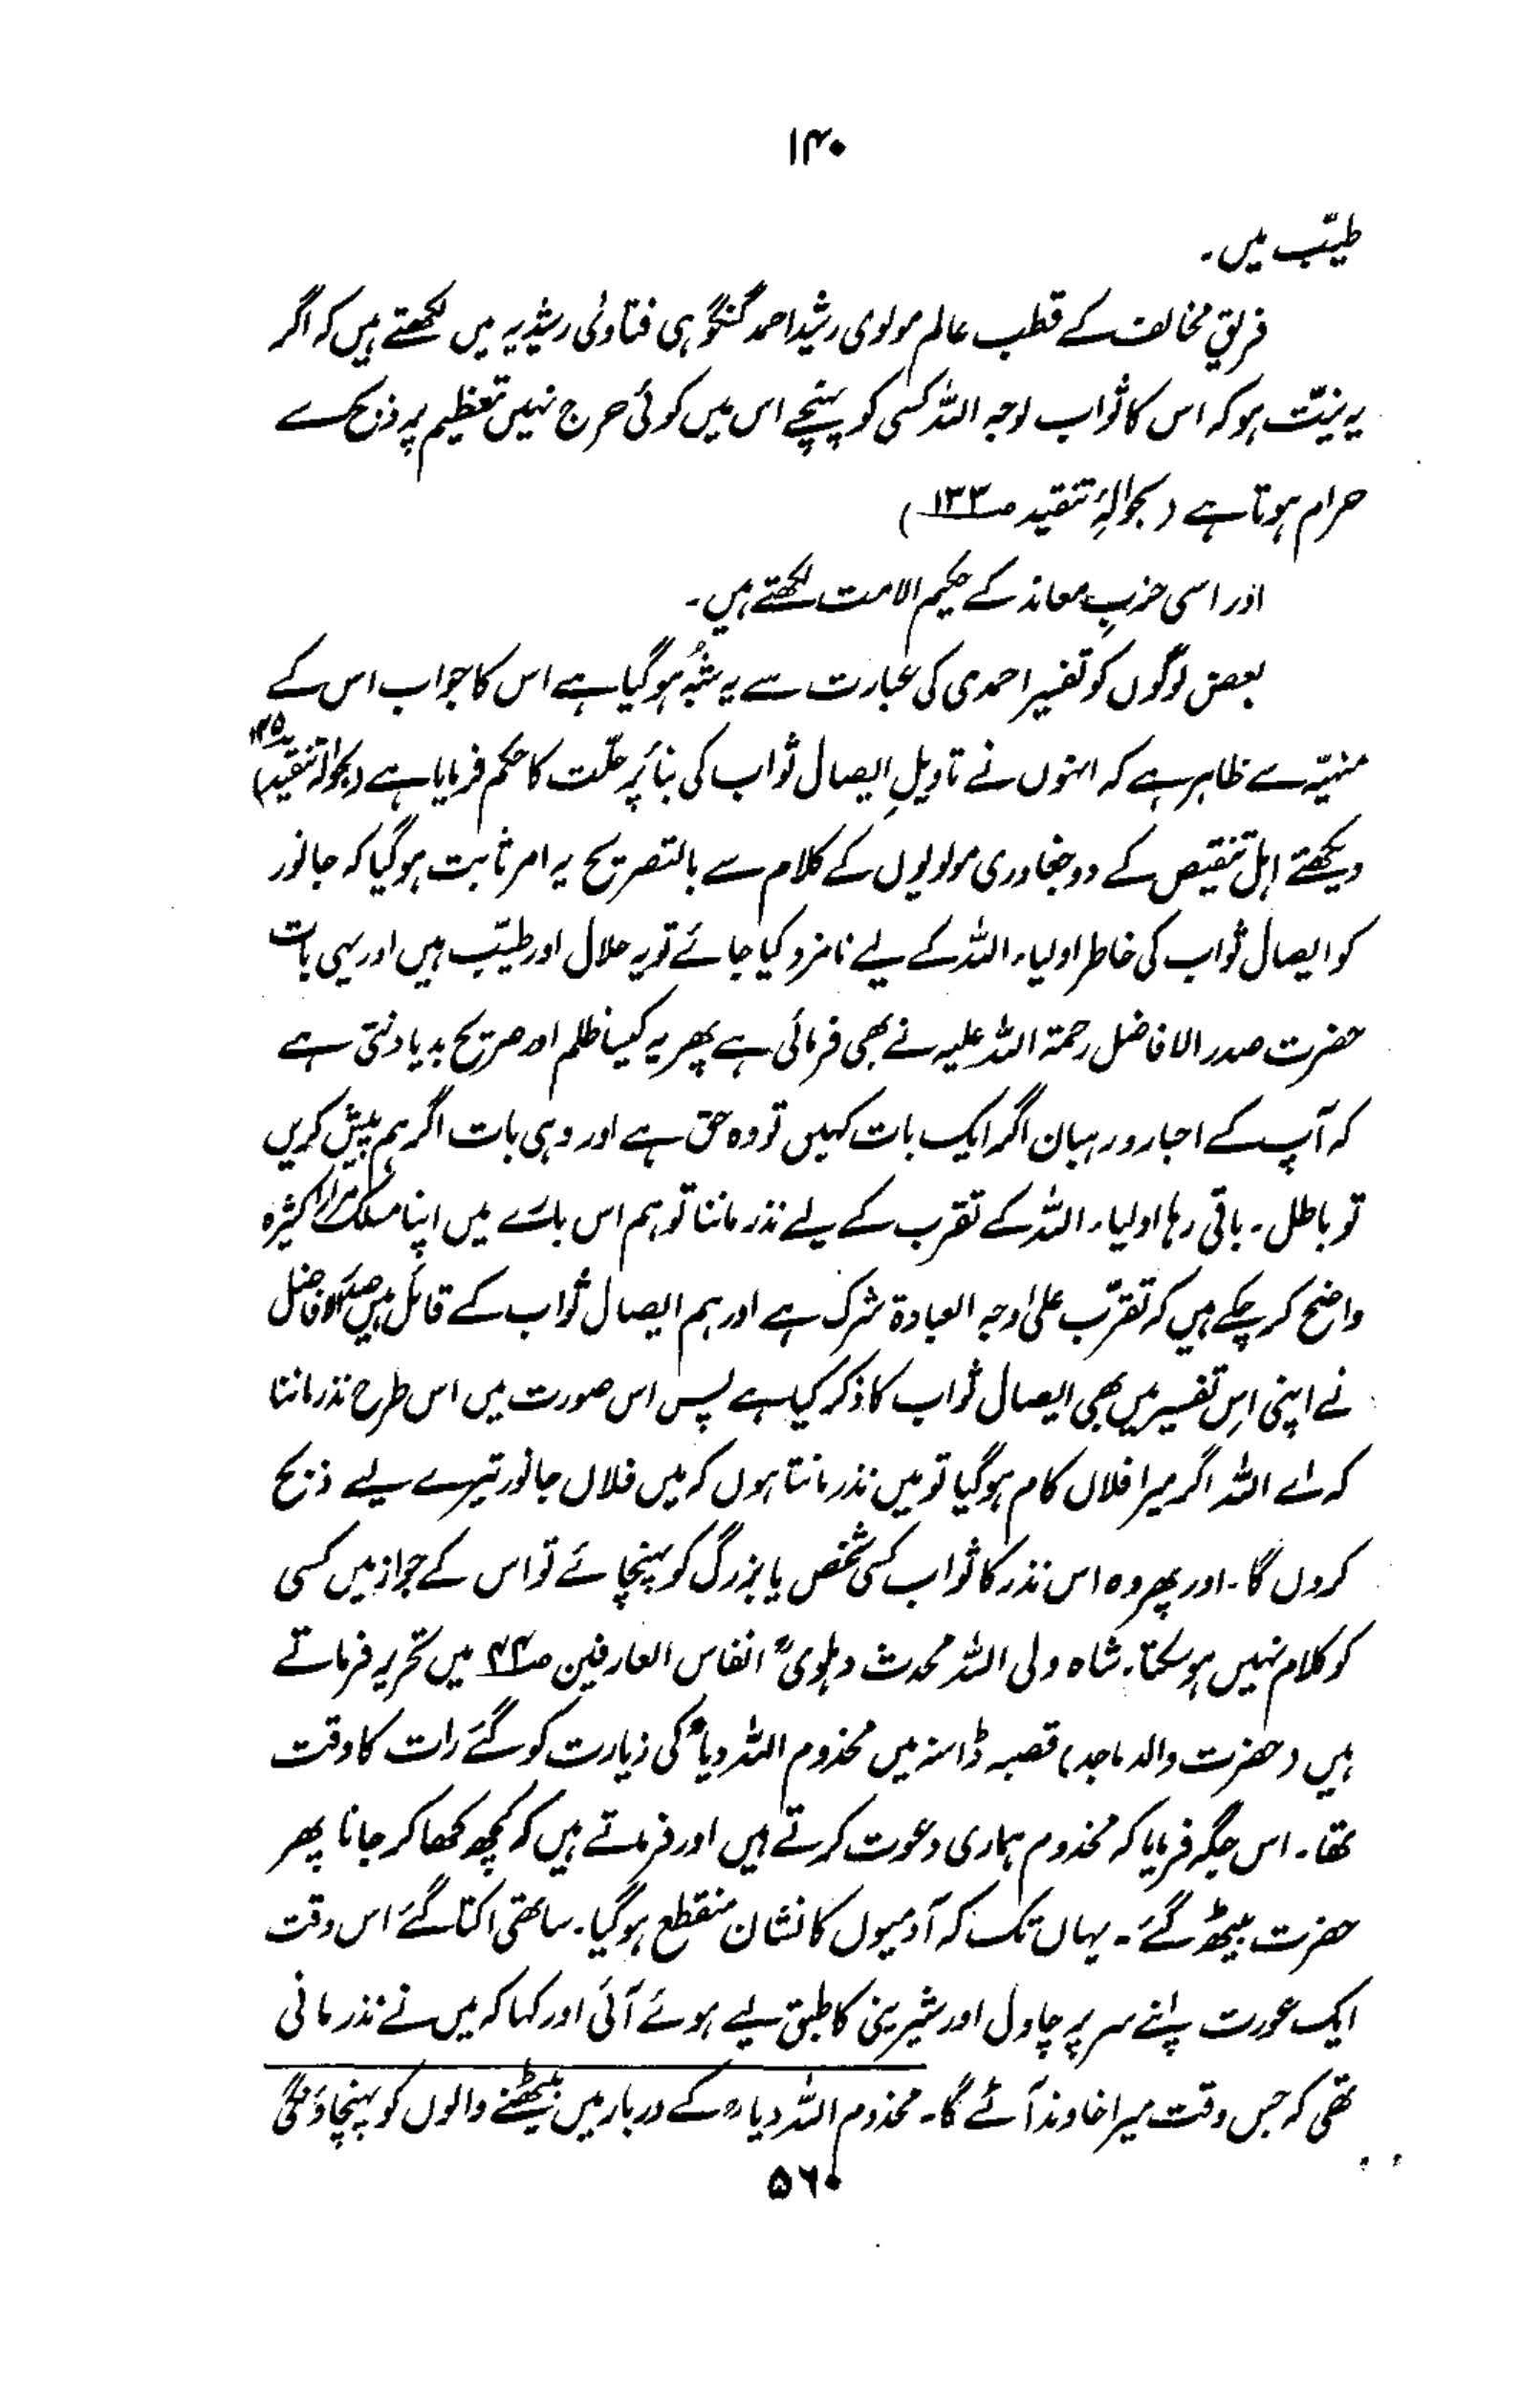 ۱۴۰
طیّب میں۔
فریقِ مخالف کے قطب عالم مولوی رشید احمد گنگوہی فتاوٰی رشیدیہ میں لکھتے ہیں کہ اگر
یہ نیّت ہو کہ اس کا ثواب لوجہ اللہ کسی کو پہنچے اس میں کوئی حرج نہیں تعظیم پر ذبح کرے
حرام ہوتا ہے (بحوالۂ تنقید صـ۱۳۳)
اور اسی حزبِ معاند کے حکیم الامت لکھتے ہیں۔
بعض لوگوں کو تفسیر احمدی کی عبارت سے یہ شبُہ ہو گیا ہے اس کا جواب اس کے
منہیّہ سے ظاہر ہے کہ انہوں نے تاویلِ ایصال ثواب کی بنا پر حلّت کا حکم فرمایا ہے (بحوالہ تنقید)
دیکھئے اہل تنقیص کے دو جغادری مولویوں کے کلام سے بالتصریح یہ امر ثابت ہو گیا کہ جانور
کو ایصال ثواب کی خاطر اولیاء اللہ کے لیے نامزد کیا جائے تو یہ حلال اور طیّب ہیں اور یہی بات
حضرت صدر الافاضل رحمۃ اللہ علیہ نے بھی فرمائی ہے پھر یہ کیسا ظلم اور صریح بددیانتی ہے
کہ آپ کے احبار و رہبان اگر ایک بات کہیں تو وہ حق ہے اور وہی بات اگر ہم پیش کریں
تو باطل۔ باقی رہا اولیاء اللہ کے تقرب کے لیے نذر ماننا تو ہم اس بارے میں اپنا مسلک
واضح کر چکے ہیں کہ تقرّب علیٰ وجہ العبادۃ شرک ہے اور ہم ایصال ثواب کے قائل ہیں صدر الافاضل
نے اپنی اِس تفسیر میں بھی ایصال ثواب کا ذکر کیا ہے پس اس صورت میں اس طرح نذر ماننا
کہ اے اللہ اگر میرا فلاں کام ہو گیا تو میں نذر مانتا ہوں کہ میں فلاں جانور تیرے لیے ذبح
کروں گا۔ اور پھر وہ اس نذر کا ثواب کسی شخص یا بزرگ کو پہنچائے تو اس کے جواز میں کسی
کو کلام نہیں ہو سکتا۔ شاہ ولی اللہ محدث دہلویؒ انفاس العارفین صـ۴۴ میں تحریر فرماتے
ہیں (حضرت والد ماجد) قصبہ ڈاسنہ میں مخدوم اللہ دیاؒ کی زیارت کو گئے رات کا وقت
تھا۔ اس جگہ فرمایا کہ مخدوم ہماری دعوت کرتے ہیں اور فرماتے ہیں کہ کچھ کھا کر جانا پھر
حضرت بیٹھ گئے۔ یہاں تک کہ آدمیوں کا نشان منقطع ہو گیا۔ ساتھی اکتا گئے اس وقت
ایک عورت اپنے سر پر چاول اور شیرینی کا طبق لیے ہوئے آئی اور کہا کہ میں نے نذر مانی
تھی کہ جس وقت میرا خاوند آئے گا۔ مخدوم اللہ دیاؒ کے دربار میں بیٹھنے والوں کو پہنچاؤں گی
۵۶۰